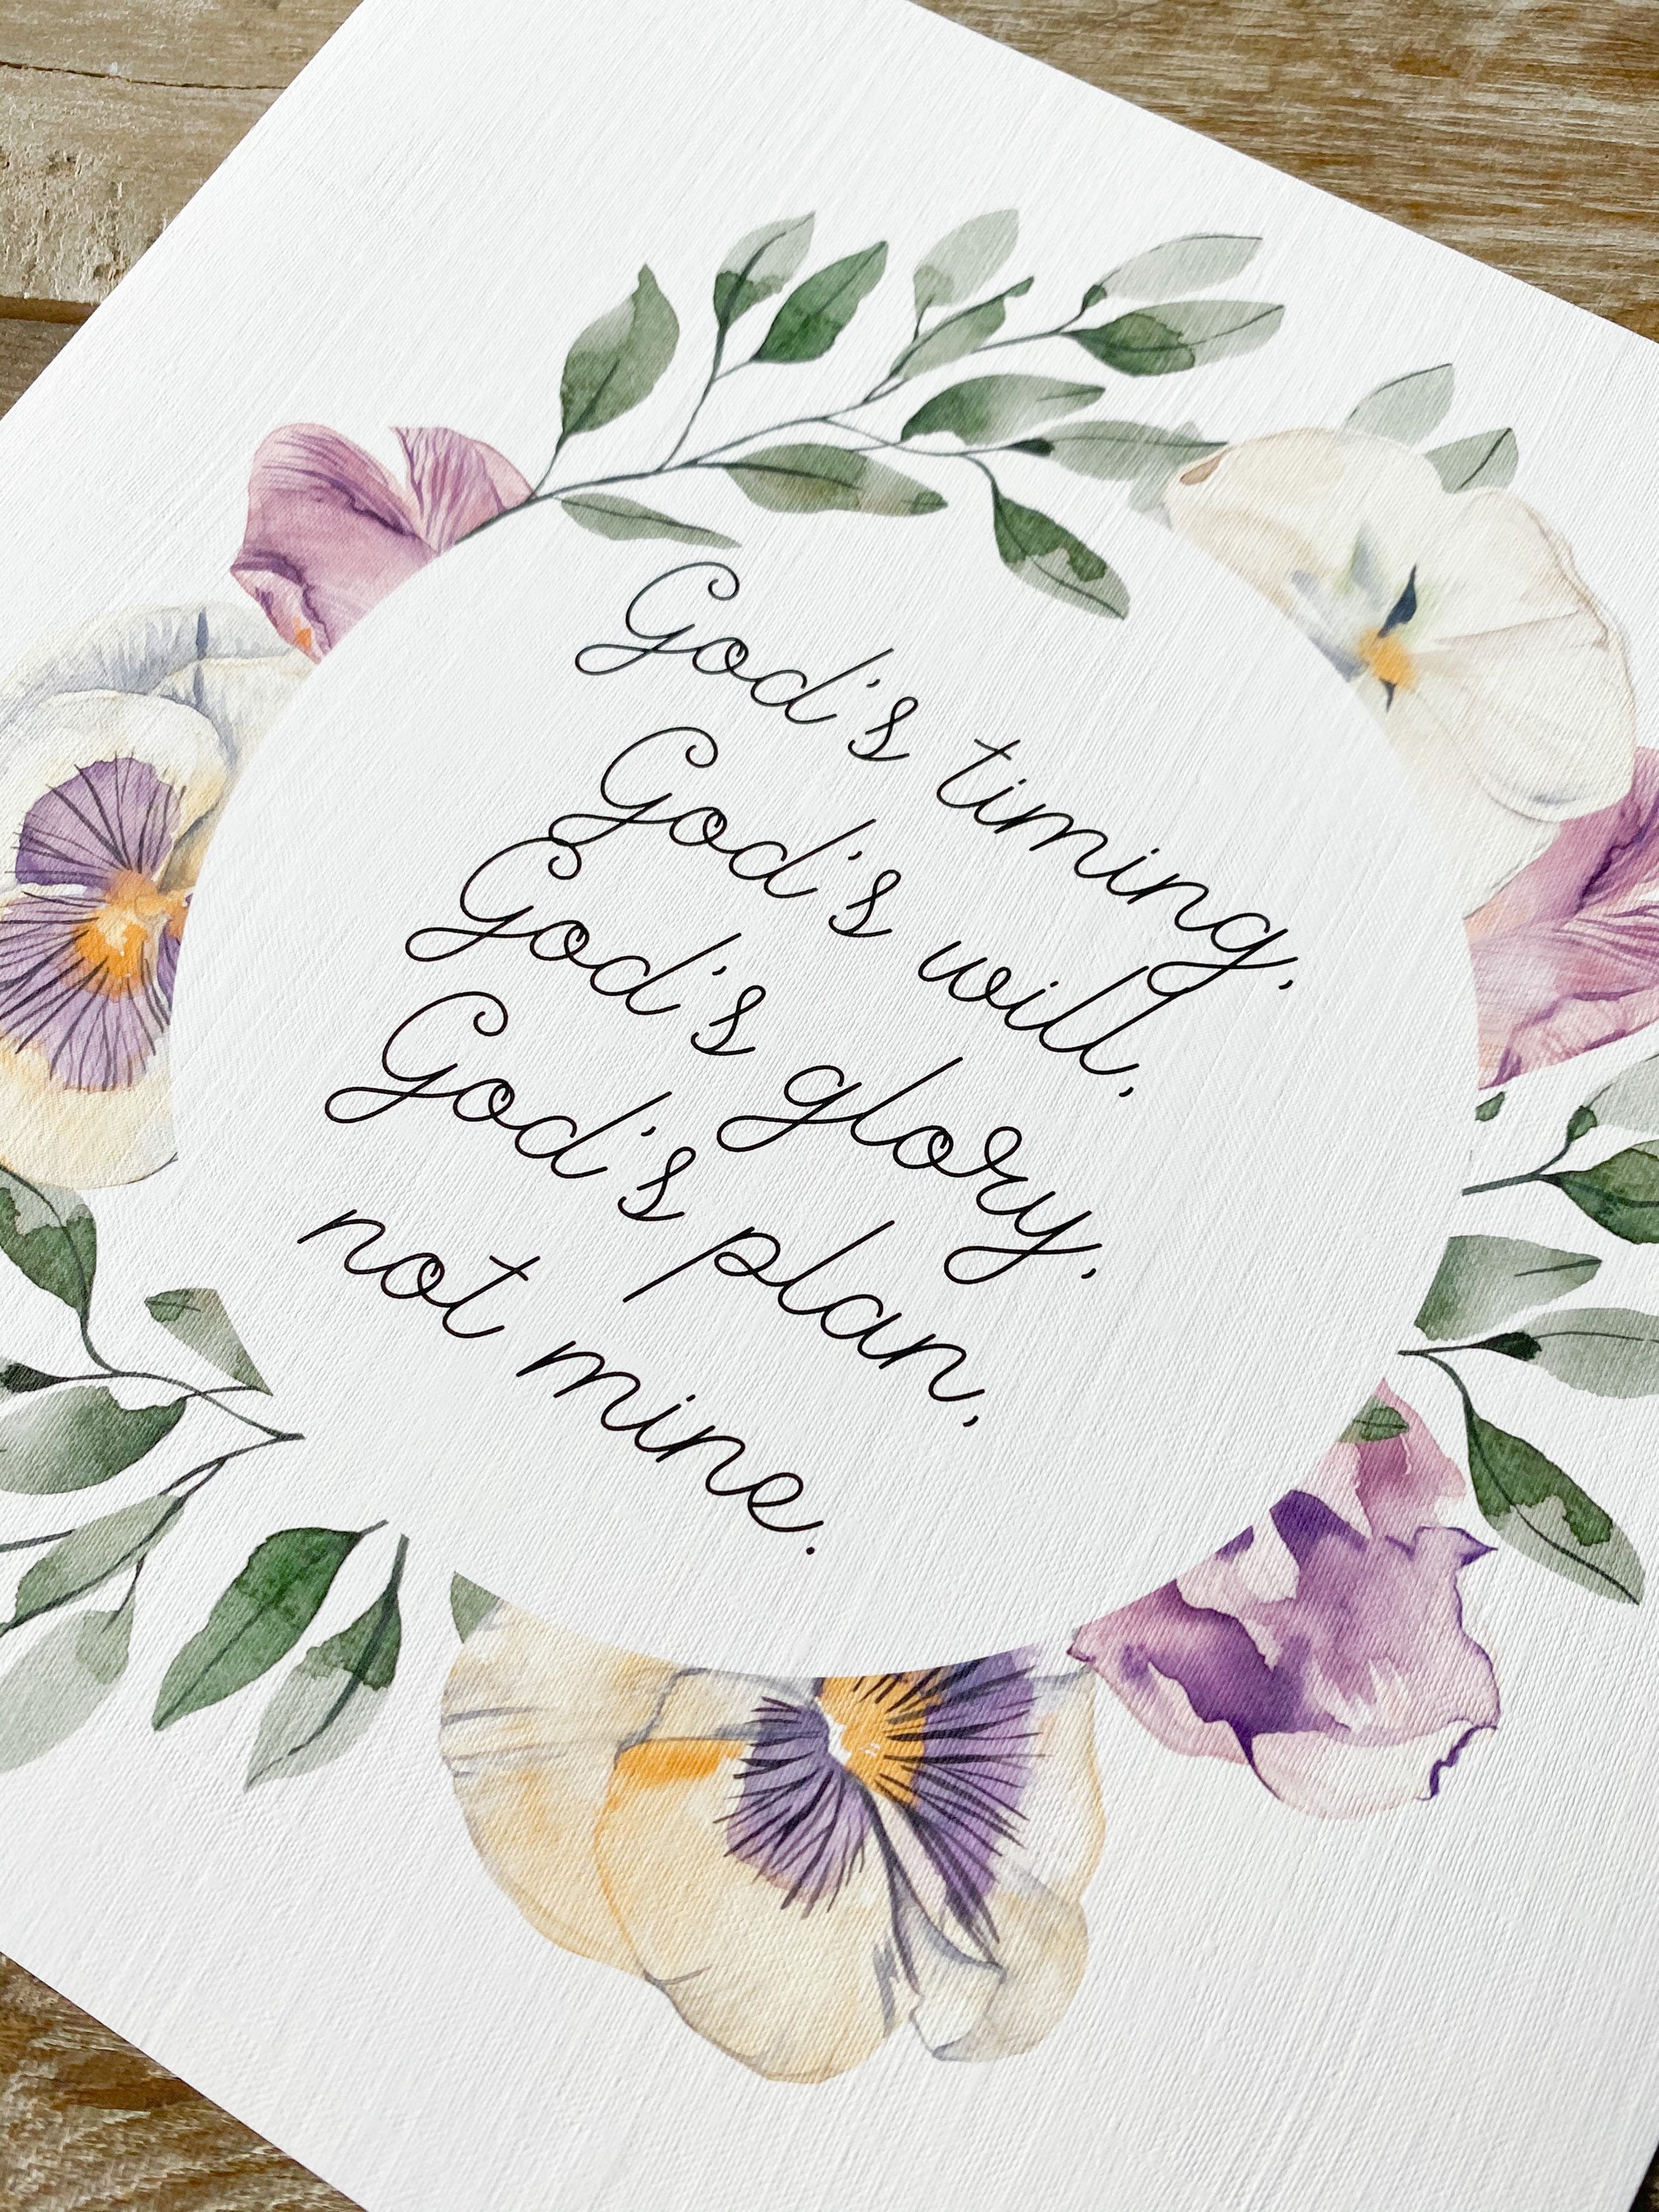 God's timing,
God's will,
God's glory,
God's plan,
not mine.